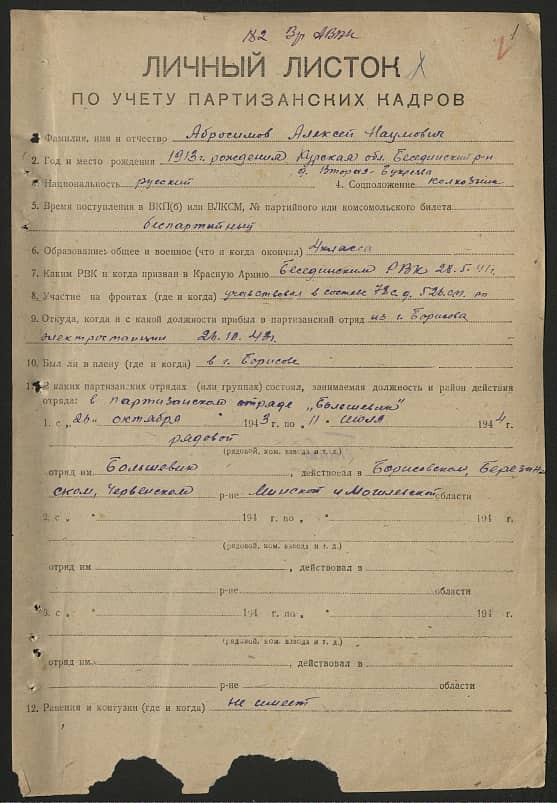 182
1
ЛИЧНЫЙ ЛИСТОК
ПО УЧЕТУ ПАРТИЗАНСКИХ КАДРОВ
Фамилия, имя и отчество Абросимов Алексей Наумович
2. Год и место рождения 1913 г. рождения Курская обл. Бесединский р-н
д. Вторая-
Национальность русский 4. Соцположение колхозник
5. Время поступления в ВКП(б) или ВЛКСМ, № партийного или комсомольского билета
беспартийный
6. Образование: общее и военное (что и когда окончил) 4 класса
7. Каким РВК и когда призван в Красную Армию Бесединским РВК 28.5.41 г.
8. Участие на фронтах (где и когда) участвовал в составе
9. Откуда, когда и с какой должности прибыл в партизанский отряд из г. Борисова
электростанции 26.10.43 г.
10. Был ли в плену (где и когда) в г. Борисове
В каких партизанских отрядах (или группах) состоял, занимаемая должность и район действия
отряда: в партизанском отряде „Большевик"
1. с „26 " октября 1943 г. по „11 " июля 1944 г.
рядовой
(рядовой, ком. взвода и т. д.)
отряд им. Большевик , действовал в Борисовском, Березин-
ском, Червенском р-не Минской и Могилевской области
2. с „ " 194 г. по „ " 194 г.
(рядовой, ком. взвода и т. д.)
отряд им. , действовал в
р-не области
3. с „ " 194 г. по „ " 194 г.
(рядовой, ком. взвода и т. д.)
отряд им. , действовал в
р-не области
12. Ранения и контузии (где и когда) не имеет